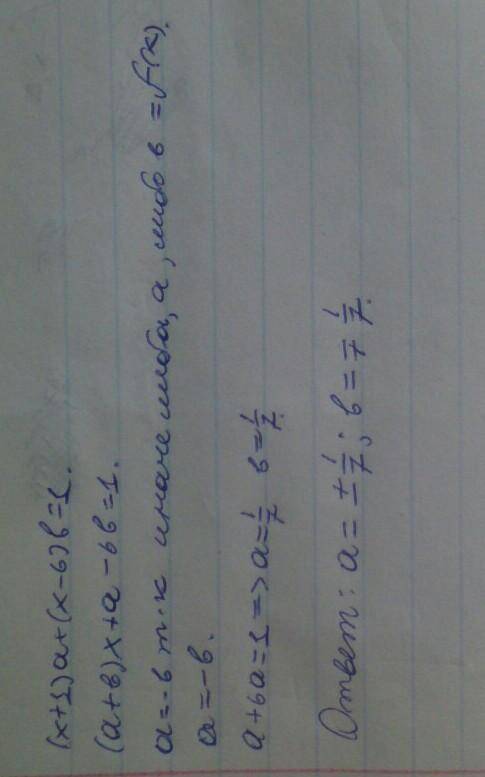 (x+1)a+(x-6)b=1.
(a+b)x+a-6b=1.
a=-b т.к иначе либо, a, либо b =f(x).
a=-b.
a+6a=1=>a=1/7 b=1/7.
Ответ: a=±1/7; b=∓1/7.